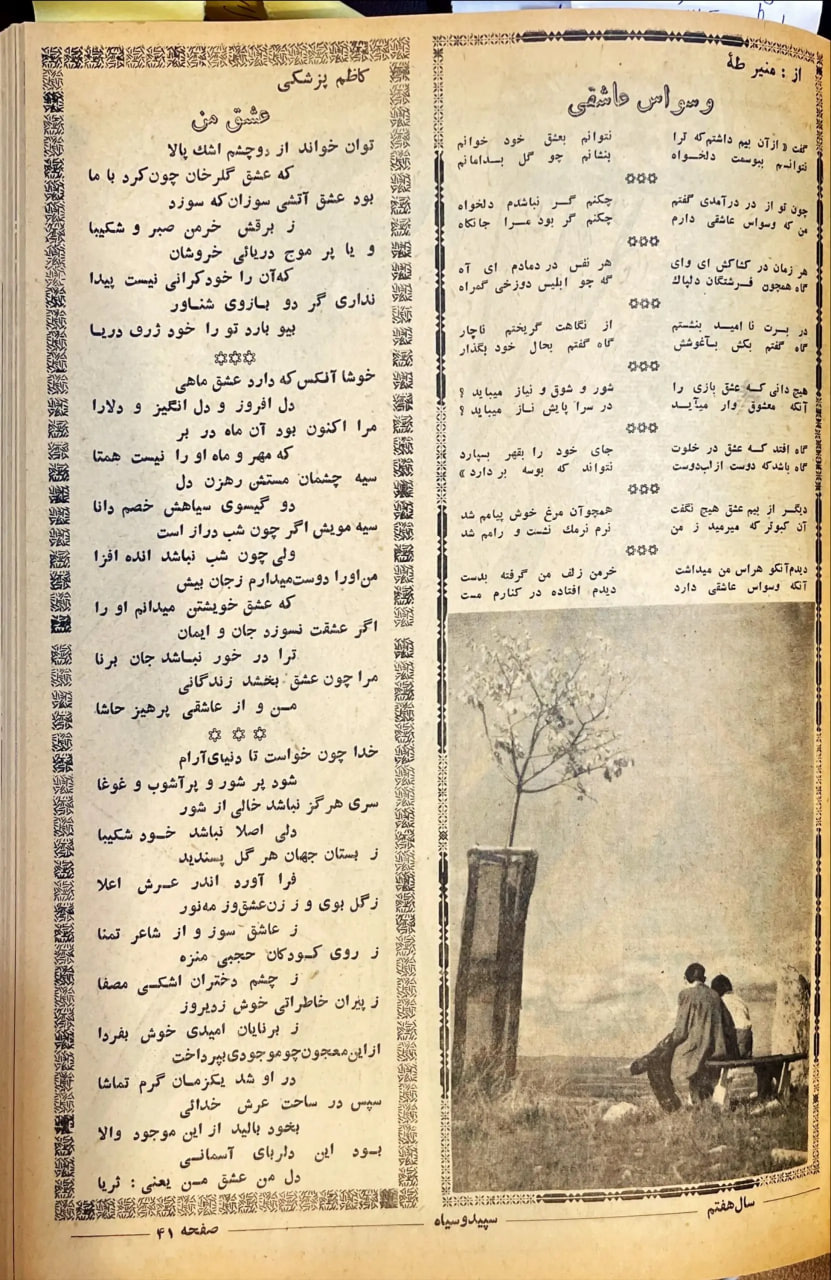 از : منیر طهٔ
وسواس عاشقی
گفت « ازآن بیم داشتم‌که ترا نتوانم بعشق خود خوانم
نتوانـم ببوسمت دلخـواه بنشانم چو گل بـدامانم
✡✡✡
چون تو از در درآمدی گفتم چکنم گـر نباشدم دلخواه
من که وسواس عاشقی دارم چکنم گر بود مـرا جانکاه
✡✡✡
هر زمان در کشاکش ای وای هر نفس در دمادم ای آه
گاه همچون فـرشتگان دلپاك گه چو ابلیس دوزخی گمراه
✡✡✡
در بـرت نا امیـد بنشستم از نگاهت گریختم ناچار
گاه گفتم بکش بـآغوشش گاه گفتم بحال خود بگذار
✡✡✡
هیچ دانی کـه عشق بازی را شور و شوق و نیاز میباید ؟
آنکه معشوق وار میآیـد در سرا پایش نـاز میباید ؟
✡✡✡
گاه افتد کـه عشق در خلوت جای خود را بقهر بسپارد
گاه باشدکه دوست ازلب‌دوست نتواند که بوسه بردارد »
✡✡✡
دیگـر از بیم عشق هیچ نگفت همچوآن مرغ خوش پیامم شد
آن کبوتر که میرمید ز من نرم نرمك نشست و رامم شد
✡✡✡
دیدم‌آنکو هراس من میداشت خرمن زلف من گرفته بدست
آنکه وسواس عاشقی دارد دیدم افتاده در کنارم مست
کاظم پزشکی
عشق من
توان خواند از دوچشم اشك پالا
که عشق گلرخان چون‌کرد با ما
بود عشق آتشی سوزان‌که سوزد
ز برقش خرمن صبر و شکیبا
و یا پر موج دریائی خروشان
که‌آن را خودکرانی نیست پیدا
نداری گر دو بـازوی شنـاور
بیو بارد تو را خود ژرف دریـا
✡✡✡
خوشا آنکس‌که دارد عشق ماهی
دل افروز و دل انگیز و دلارا
مرا اکنون بود آن ماه در بر
که مهر و ماه او را نیست همتا
سیه چشمان مستش رهزن دل
دو گیسوی سیاهش خصم دانا
سیه مویش اگر چون شب دراز است
ولی چون شب نباشد انده افزا
من‌اورا دوست‌میدارم زجان بیش
که عشق خویشتن میدانم او را
اگر عشقت نسوزد جان و ایمان
ترا در خور نبـاشد جان برنا
مرا چون عشق بخشد زندگانی
مـن و از عاشقی پرهیز حاشا
✡ ✡ ✡
خدا چون خواست تا دنیای‌آرام
شود پر شور و پرآشوب و غوغا
سری هرگز نباشد خالی از شور
دلی اصلا نباشد خـود شکیبا
ز بستان جهان هر گل پسندید
فرا آورد اندر عـرش اعلا
زگل بوی و ز زن‌عشق‌وز مه‌نور
ز عاشق سوز و از شاعر تمنا
ز روی کـودکان حجبی منزه
ز چشم دختران اشکـی مصفا
ز پیران خاطراتی خوش زدیروز
ز برنایان امیدی خوش بفردا
ازاین‌معجون‌چوموجودی‌بپرداخت
در او شد یکزمـان گرم تماشا
سپس در ساحت عرش خدائی
بخود بالید از این موجود والا
بـود این دلربای آسمانـی
دل من عشق مـن یعنی : ثریا
سال هفتم
سپیدوسیاه
صفحه ۴۱